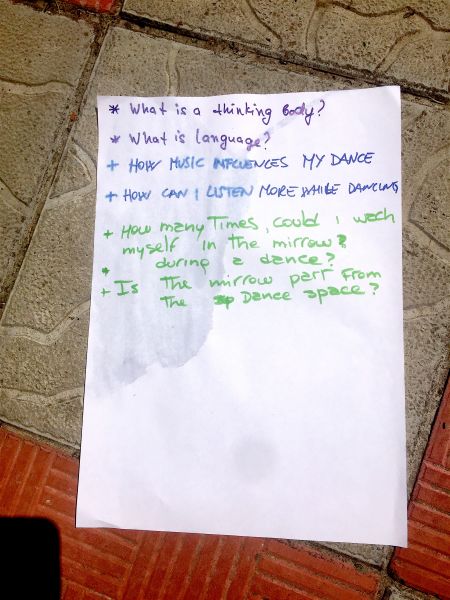 * What is a thinking Body?
* What is language?
+ HOW MUSIC INFLUENCES MY DANCE
+ HOW CAN I LISTEN MORE WHILE DANCING
+ How many Times, could i wach
myself in the mirrow?
* during a dance?
+ Is the mirrow part from
the Dance space?